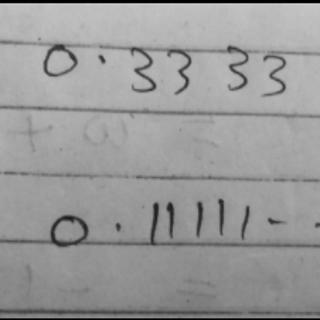 0.33 33
0.111111--